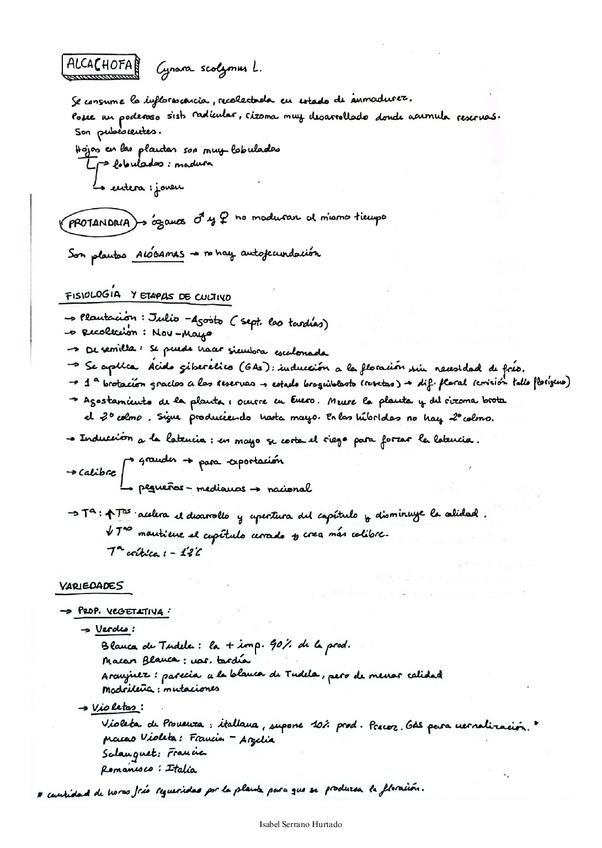 ALCACHOFA Cynara scolymus L.
Se consume la inflorescencia, recolectada en estado de inmadurez.
Posee un poderoso sist radicular, rizoma muy desarrollado donde acumula reservas.
Son pubescentes.
Hojas en las plantas son muy lobuladas
→ lobulados: madura
→ entera: joven
PROTANDRIA → órganos ♂ y ♀ no maduran al mismo tiempo
Son plantas ALÓGAMAS → no hay autofecundación
FISIOLOGÍA Y ETAPAS DE CULTIVO
→ Plantación: Julio - Agosto (Sept. las tardías)
→ Recolección: Nov - Mayo
→ De semilla: Se puede hacer siembra escalonada
→ Se aplica Ácido giberélico (GAs): inducción a la floración sin necesidad de frío.
→ 1ª brotación gracias a las reservas → estado (rosetas) → dif. floral (emisión tallo florígeno)
→ Agostamiento de la planta: ocurre en Enero. Muere la planta y del rizoma brota
el colmo. Sigue produciendo hasta mayo. En las híbridas no hay 2º colmo.
→ Inducción a la latencia: en mayo se corta el riego para forzar la latencia.
→ Calibre
→ grandes → para exportación
→ pequeñas - medianas → nacional
→ Tª: ↑ Tªs acelera el desarrollo y apertura del capítulo y disminuye la calidad.
↓ Tªs mantiene el capítulo cerrado y crea más calibre.
Tª crítica:
VARIEDADES
→ PROP. VEGETATIVA:
→ Verdes:
Blanca de Tudela: la + imp. 90% de la prod.
Macau Blanca: var. tardía
Aranjuez: parecia a la blanca de Tudela, pero de menor calidad
Madrileña: mutaciones
→ Violetas:
Violeta de Provenza: italiana, supone 10% prod. Precoz. GAS para vernalización. *
Macao Violeta: Francia - Argelia
Salanquet: Francia
Romanesco: Italia
* cantidad de horas frío requeridas por la planta para que se produzca la floración.
Isabel Serrano Hurtado